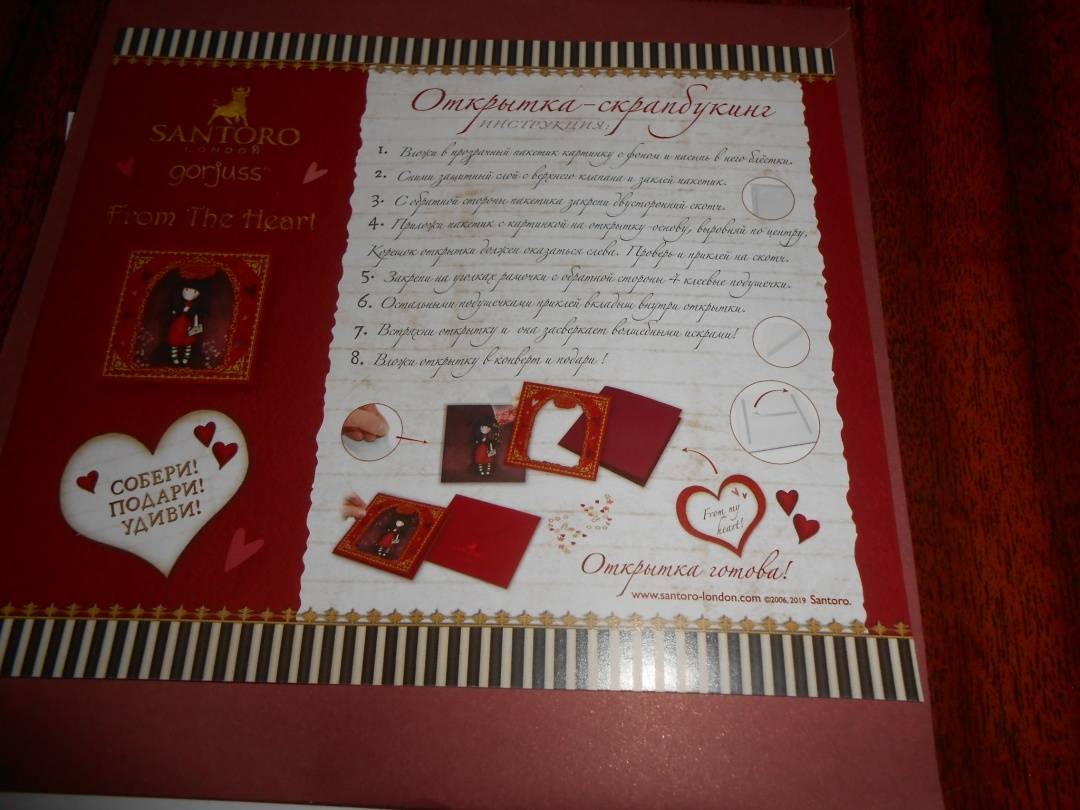 SANTORO
LONDON
gorjuss™
From The Heart
СОБЕРИ!
ПОДАРИ!
УДИВИ!
Открытка-скрапбукинг
ИНСТРУКЦИЯ:
1. Вложи в прозрачный пакетик картинку с фоном и насыпь в него блёстки.
2. Сними защитный слой с верхнего клапана и заклей пакетик.
3. С обратной стороны пакетика закрепи двусторонний скотч.
4. Приложи пакетик с картинкой на открытку-основу, выровняй по центру.
Корешок открытки должен оказаться слева. Проверь и приклей на скотч.
5. Закрепи на уголках рамочки с обратной стороны 4 клеевые подушечки.
6. Остальными подушечками приклей вкладыш внутри открытки.
7. Встряхни открытку и она засверкает волшебными искрами!
8. Вложи открытку в конверт и подари !
From my
heart!
Открытка готова!
www.santoro-london.com ©2006, 2019 Santoro.